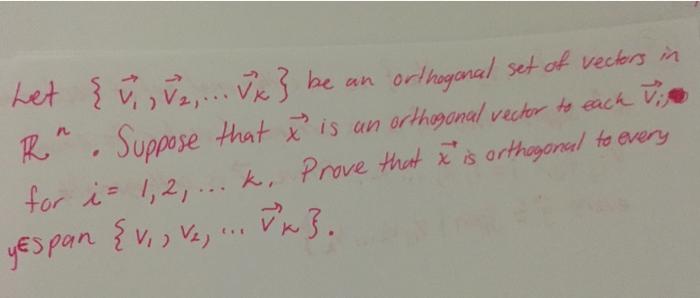 Let { v⃗₁, v⃗₂, ... v⃗ₖ } be an orthogonal set of vectors in
ℝⁿ. Suppose that x⃗ is an orthogonal vector to each v⃗ᵢ,
for i = 1, 2, ... k. Prove that x⃗ is orthogonal to every
y∈span { v₁, v₂, ... v⃗ₖ }.